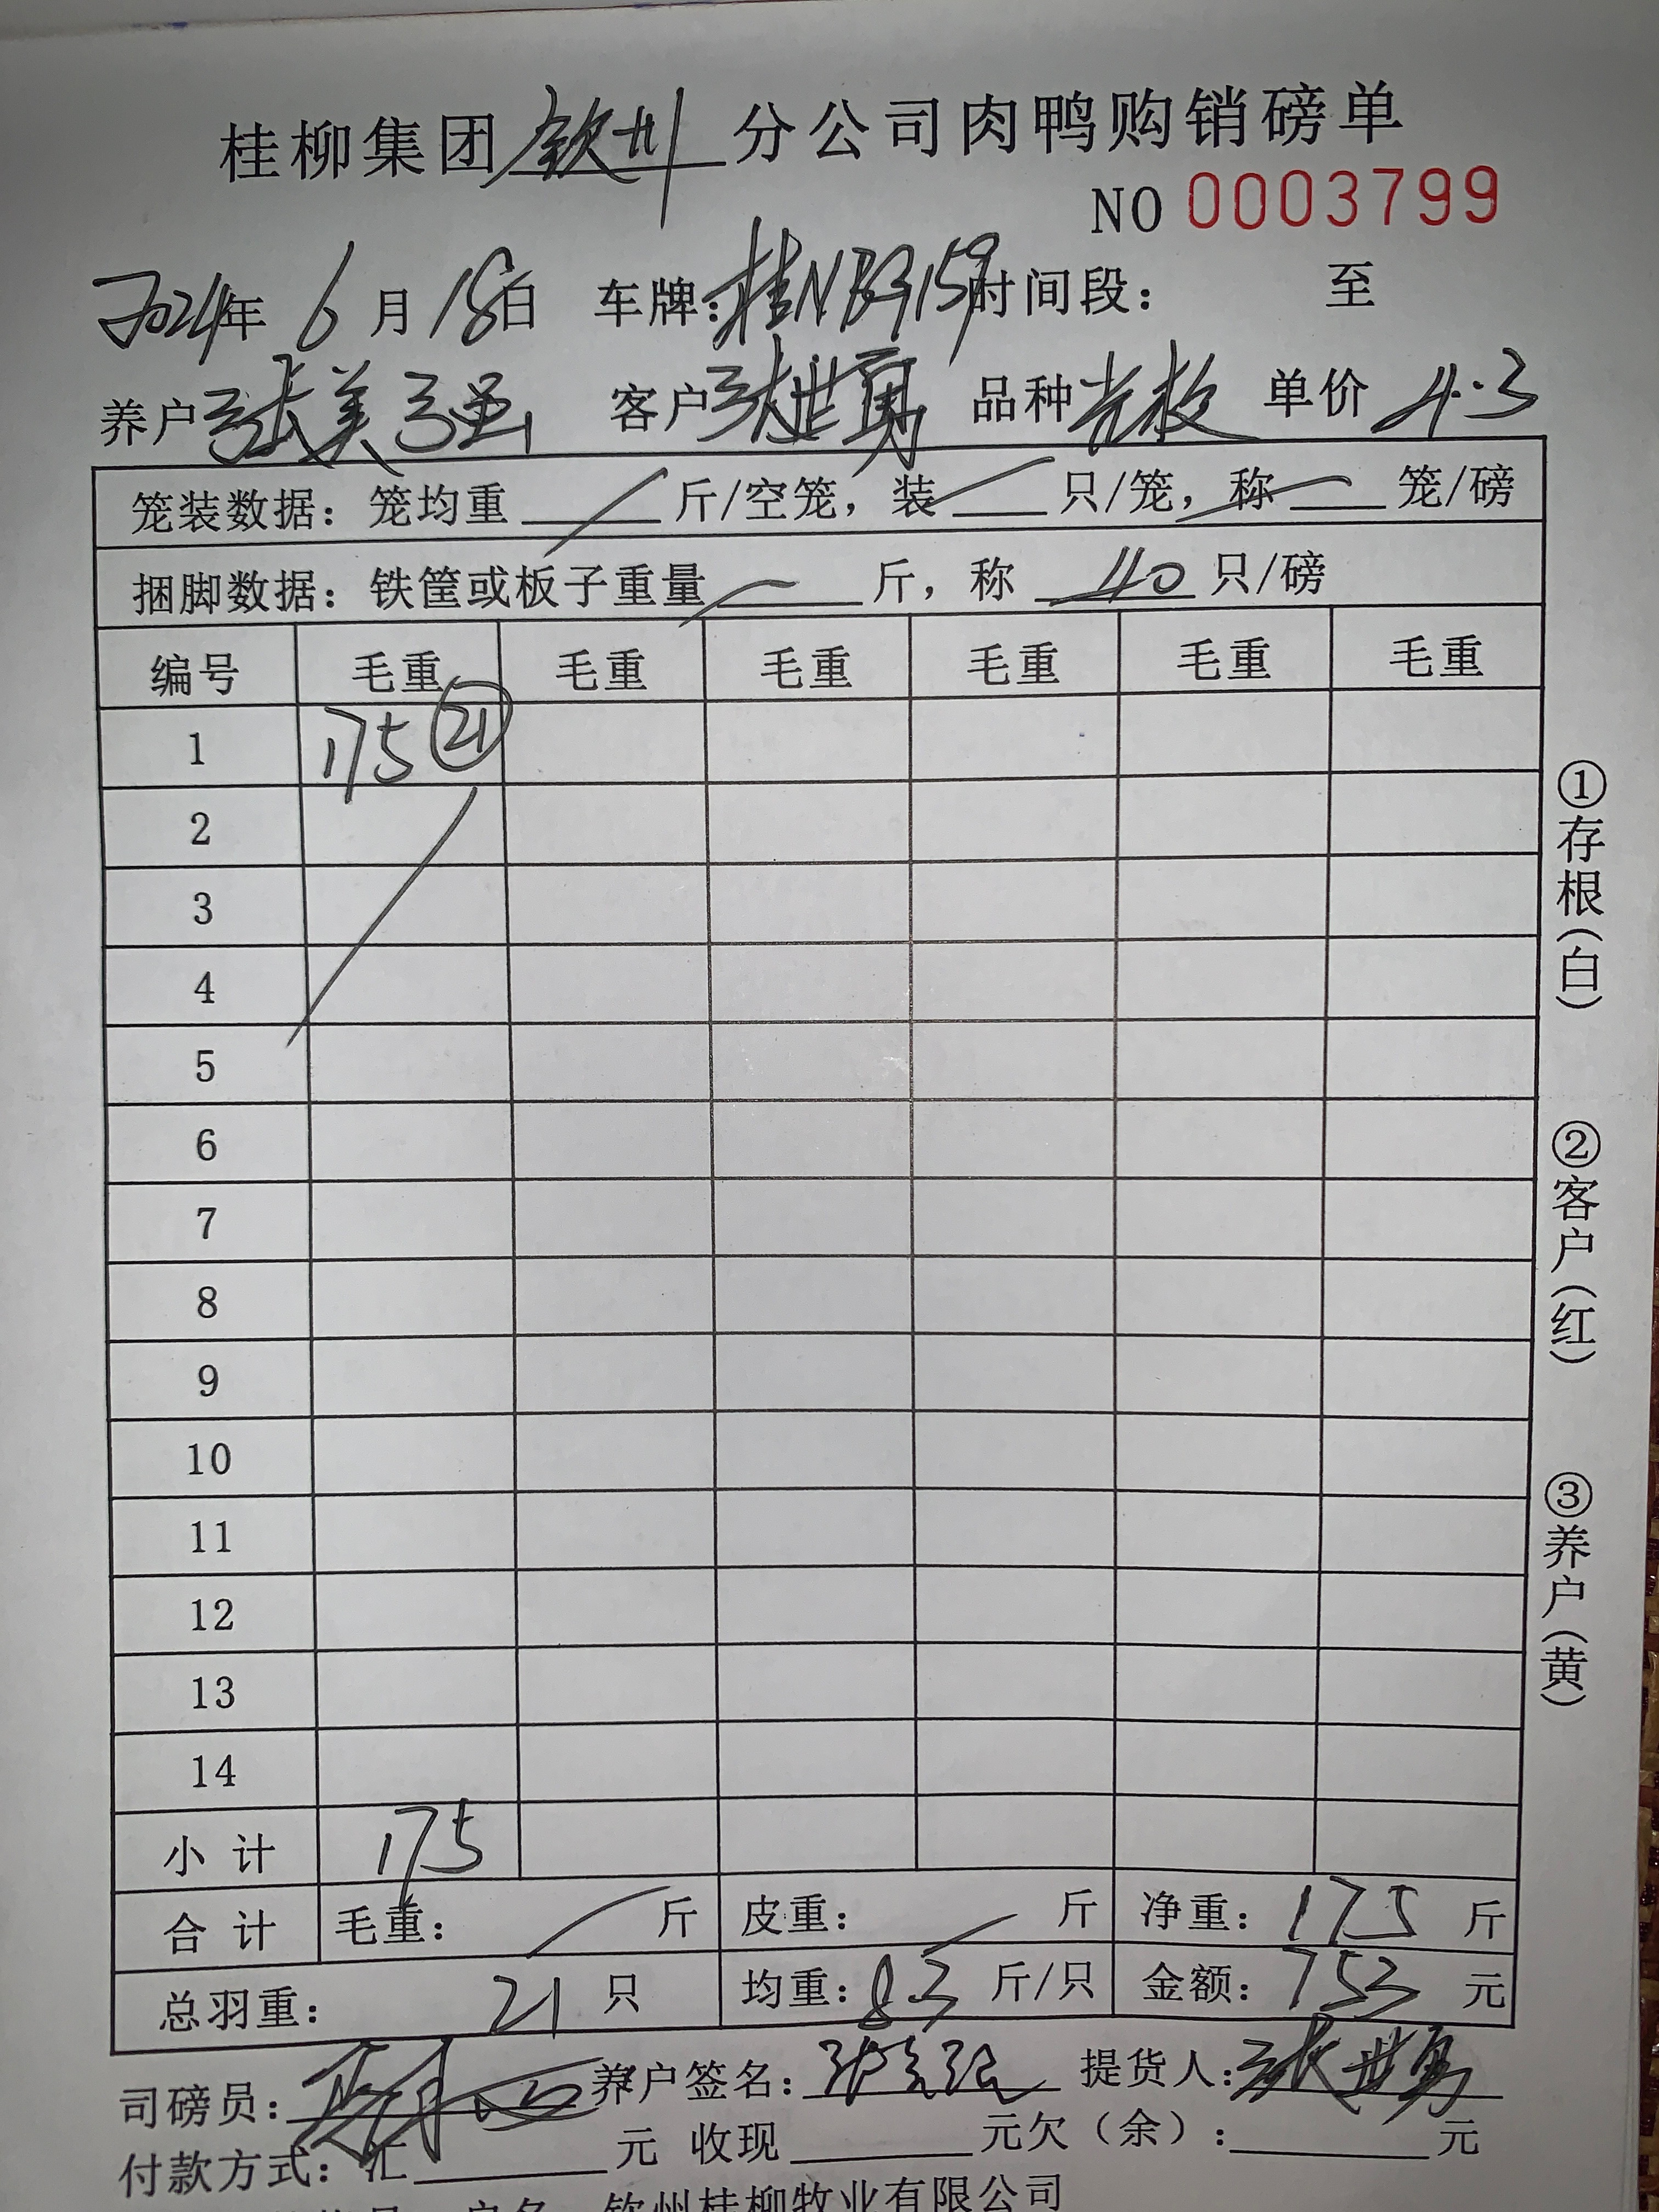 桂柳集团 钦州 分公司肉鸭购销磅单
NO 0003799
2024年 6 月 18日 车牌:桂NB9159 时间段: 至
养户 张美强 客户 张世勇 品种 单价 4.3
笼装数据: 笼均重 斤/空笼, 装 只/笼, 称 笼/磅
捆脚数据: 铁筐或板子重量 斤, 称 40 只/磅
编号 毛重 毛重 毛重 毛重 毛重 毛重
1 175 ㉑
2
3
4
5
6
7
8
9
10
11
12
13
14
小 计 175
合 计 毛重: 斤 皮重: 斤 净重: 175 斤
总羽重: 21 只 均重: 8.3 斤/只 金额: 753 元
司磅员: 养户签名: 提货人: 张世勇
付款方式: 汇 元 收现 元欠(余): 元
户名 钦州桂柳牧业有限公司
①存根(白)
②客户(红)
③养户(黄)